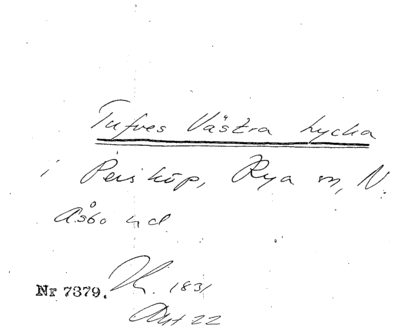 Tufves Västra lycka
i Persköp, Rya sn, N.
Åsbo hd
Nr 7379. 1831
Akt 22